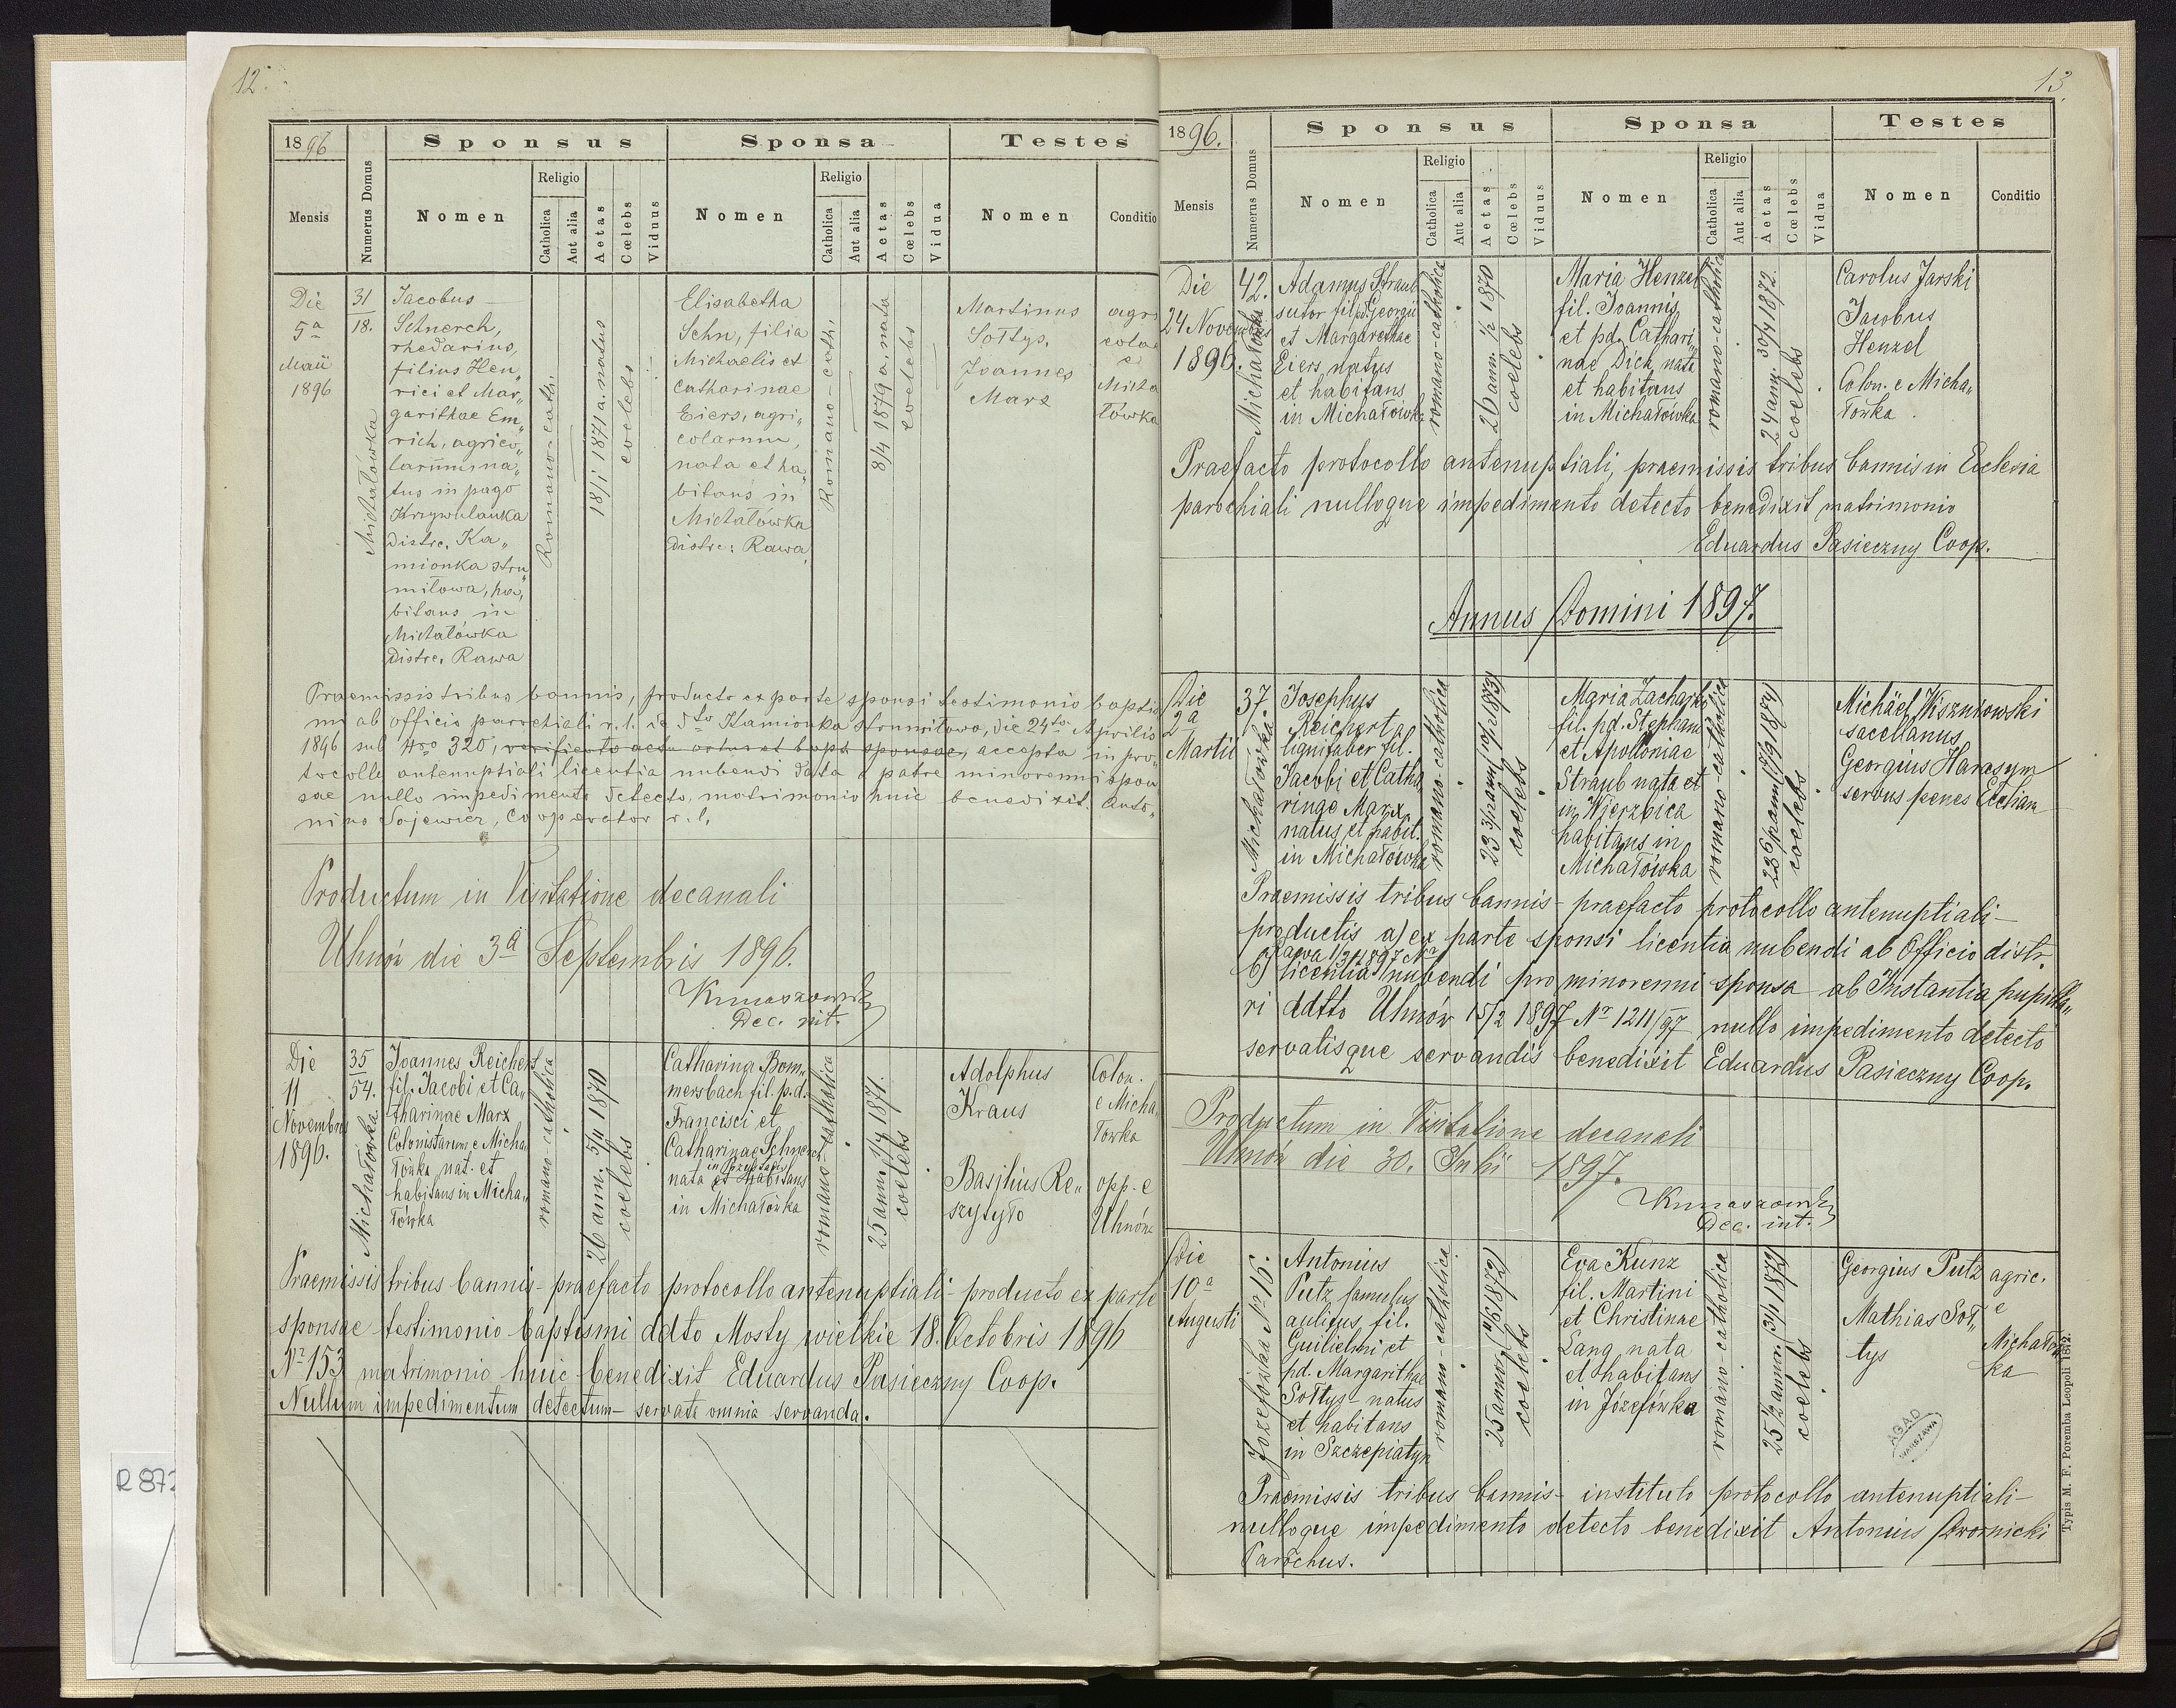 12.
1896
Sponsus
Sponsa
Testes
Mensis
Numerus Domus
Nomen
Religio
Catholica
Aut alia
Aetas
Cœlebs
Viduus
Nomen
Religio
Catholica
Aut alia
Aetas
Cœlebs
Vidua
Nomen
Conditio
Die
5a
Maii
1896
31
18.
Michałówka
Jacobus
Schnerch,
rhedarius,
filius Hen„
rici et Mar„
garithae Em„
rich, agrico„
larum, na„
tus in pago
Krzywulanka
distr. Ka„
mionka stru„
miłowa, ha„
bitans in
Michałówka
distr. Rawa
Romano-cath.
18/1 1871 a. natus
coelebs
Elisabetha
Sehn, filia
Michaelis et
Catharinae
Eiers, agri„
colarum,
nata et ha„
bitans in
Michałówka
distr: Rawa
Romano-cath.
8/4 1879 a. nata
coelebs
Martinus
Sołtys.
Joannes
Marx
agri
colae
e
Micha
łówka
Praemissis tribus bannis, producto ex parte sponsi testimonio baptis
mi ab officio parochiali r. l. de dto Kamionka strumiłowa, die 24to Aprilis
1896 sub Nro 320, accepta in pro„
tocollo antenuptiali licentia nubendi data a patre minorenni spon
sae nullo impedimento detecto, matrimonio huic benedixit Anto„
ninus Sojewicz, Cooperator r. l.
Productum in Visitatione decanali
Uhnów die 3a Septembris 1896.
Dec. int.
Die
11
Novembris
1896.
35
54.
Michałówka
Joannes Reichert
fil. Jacobi et Ca„
tharinae Marx
Colonistarum e Micha„
łówka nat. et
habitans in Micha„
łówka
romano-catholica
26 ann. 5/4 1870
coelebs
Catharina Bom„
mersbach fil. p.d.
Francisci et
Catharinae Schnerch
nata et habitans
in Michałówka
romano catholica
25 ann. 1/4 1871.
coelebs
Adolphus
Kraus
Colon.
e Micha
łówka
Basilius Re„
szytyło
opp. e
Uhnów
Praemissis tribus bannis - praefacto protocollo antenuptiali - producto ex parte
sponsae testimonio baptismi ddto Mosty wielkie 18. Octobris 1896
Nr 153 matrimonio huic benedixit Eduardus Pasieczny Coop.
Nullum impedimentum detectum - servata omnia servanda.
R 872
13.
1896.
Sponsus
Sponsa
Testes
Mensis
Numerus Domus
Nomen
Religio
Catholica
Aut alia
Aetas
Cœlebs
Viduus
Nomen
Religio
Catholica
Aut alia
Aetas
Cœlebs
Vidua
Nomen
Conditio
Die
24 Novembris
1896.
42.
Michałówka
Adamus Straub
sutor fil. pd. Georgii
et Margarethae
Eiers, natus
et habitans
in Michałówka
romano-catholica
26 ann. 1/2 1870
coelebs
Maria Henzel
fil. Joannis
et pd. Cathari„
nae Dick, nata
et habitans
in Michałówka
romano-catholica
24 ann. 30/4 1872.
coelebs
Carolus Jarski
Jacobus
Henzel
Colon. e Micha„
łówka.
Praefacto protocollo antenuptiali, praemissis tribus bannis in Ecclesia
parochiali nulloque impedimento detecto benedixit matrimonio
Eduardus Pasieczny Coop.
Annus Domini 1897.
Die
2a
Martii
37.
Michałówka
Josephus
Reichert
lignifaber fil.
Jacobi et Catha„
rinae Marx,
natus et habit.
in Michałówka
romano-catholica
coelebs
Maria Zacharko
fil. pd. Stephani
et Apolloniae
Straub nata et
in Wierzbica
habitans in
Michałówka
romano-catholica
coelebs
Michäel Wiszniowski
sacellanus
Georgius Harasym
servus penes Eccliam
Praemissis tribus bannis - praefacto protocollo antenuptiali -
productis a) ex parte sponsi licentia nubendi ab Officio distr.
Rawa 1/3 1897 Nr
b) licentia nubendi pro minorenni sponsa ab Instantia pupilla„
ri ddtto Uhnów 15/2 1897 Nr 1211/97 nullo impedimento detecto
servatisque servandis benedixit Eduardus Pasieczny Coop.
Productum in Visitatione decanali
Uhnów die 30. Julii 1897.
Dec. int.
Die
10a
Augusti
Józefówka No 16.
Antonius
Putz famulus
aulicus, fil.
Guilielmi et
pd. Margarithae
Sołtys - natus
et habitans
in Szczepiatyn
romano-catholica
coelebs
Eva Kunz
fil. Martini
et Christinae
Lang nata
et habitans
in Józefówka
romano catholica
coelebs
Georgius Putz
Mathias Soł„
tys
agric.
e
Michałów
ka
Praemissis tribus bannis - instituto protocollo antenuptiali -
nulloque impedimento detecto benedixit Antonius Dwornicki
Parochus.
AGAD
WARSZAWA
Typis M. F. Poremba Leopoli 1872.